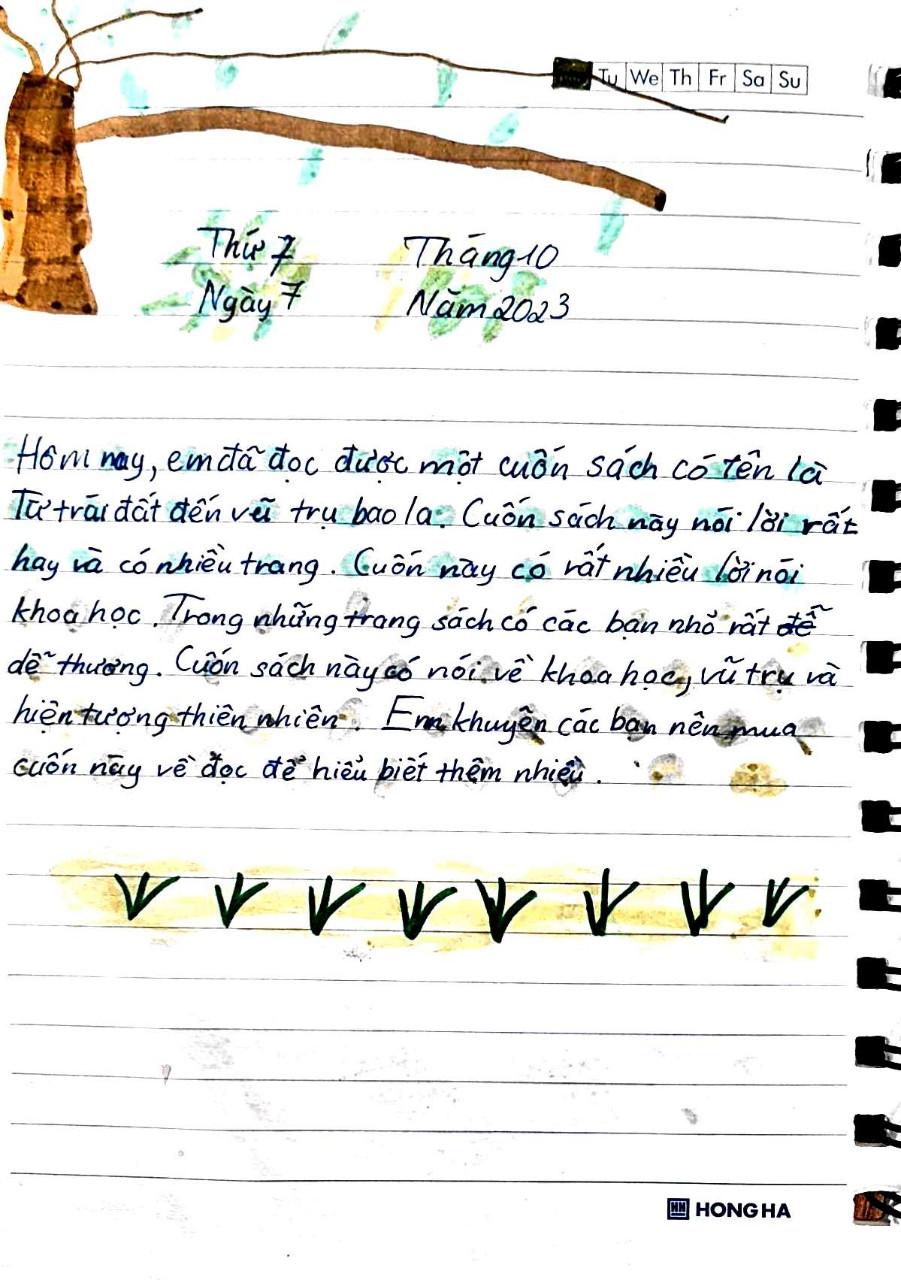 Tu We Th Fr Sa Su
Thứ 7 Tháng 10
Ngày 7 Năm 2023
Hôm nay, em đã đọc được một cuốn sách có tên là
Từ trái đất đến vũ trụ bao la. Cuốn sách này nói lời rất
hay và có nhiều trang. Cuốn này có rất nhiều lời nói
khoa học. Trong những trang sách có các bạn nhỏ rất
dễ thương. Cuốn sách này có nói về khoa học, vũ trụ và
hiện tượng thiên nhiên. Em khuyên các bạn nên mua
cuốn này về đọc để hiểu biết thêm nhiều.
HONG HA